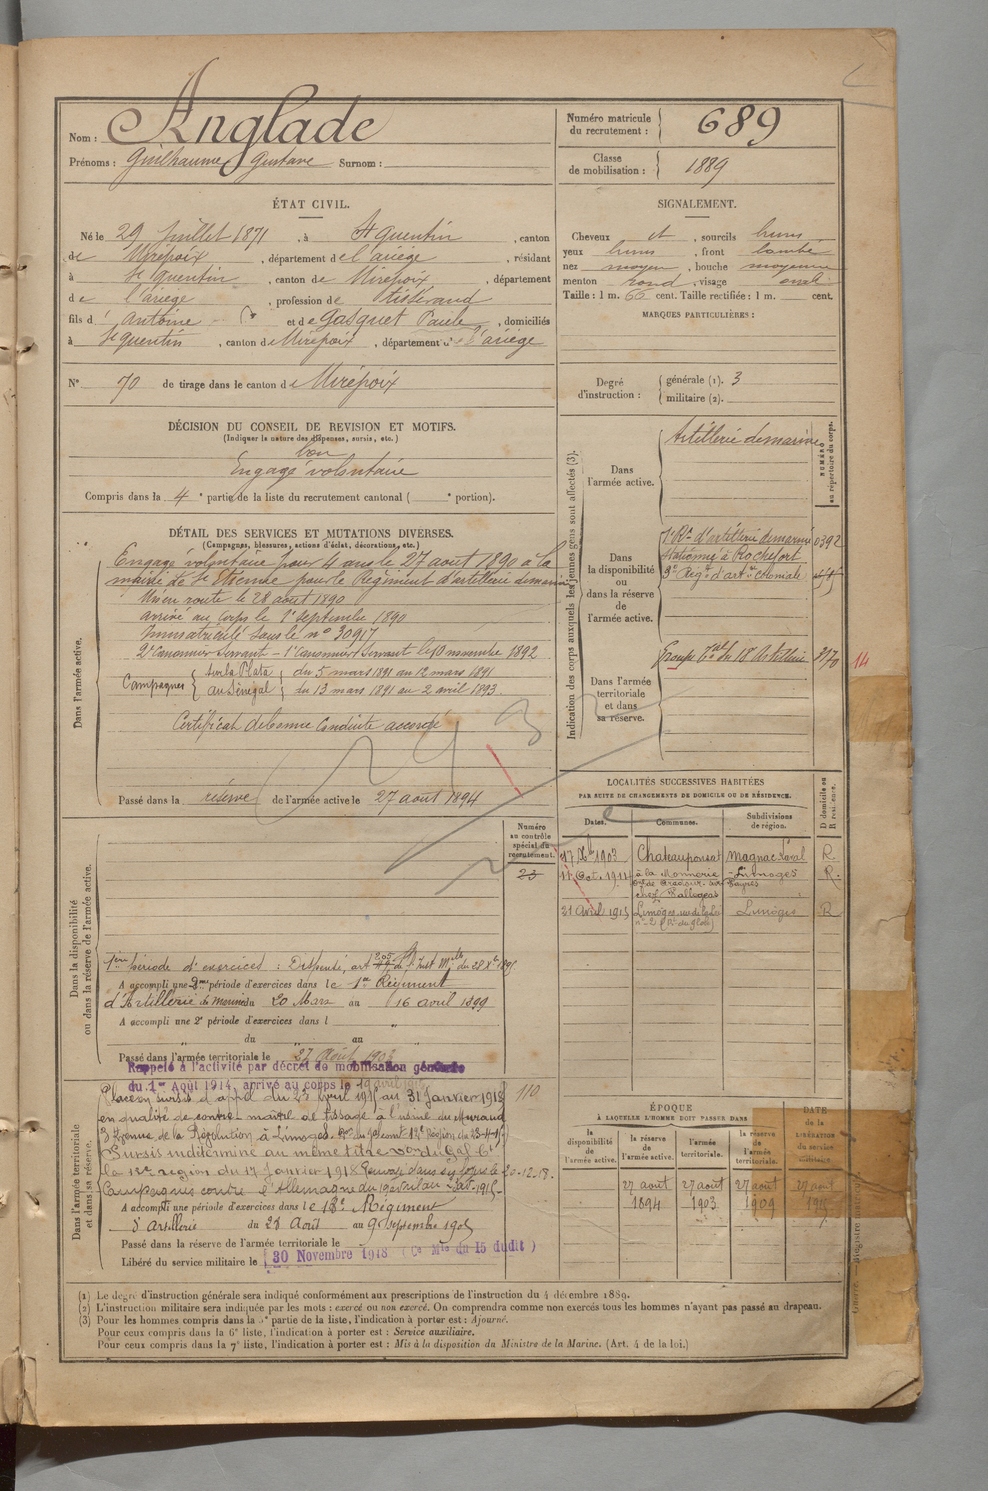 Nom : Anglade
Prénoms : Guilhaume Gustave Surnom :
Numéro matricule du recrutement : 689
Classe de mobilisation : 1889
ÉTAT CIVIL.
Né le 29 Juillet 1871, à St Quentin, canton
de Mirepoix, département de l'ariège, résidant
à St Quentin, canton de Mirepoix, département
de l'ariège, profession de Tisserand
fils d' Antoine et de Gasquet Paule, domiciliés
à St quentin, canton de Mirepoix, département de l'ariège
N° 70 de tirage dans le canton de Mirepoix
SIGNALEMENT.
Cheveux et, sourcils bruns
yeux bruns, front bombé
nez moyen, bouche moyenne
menton rond, visage oval
Taille : 1 m. 66 cent. Taille rectifiée : 1 m. cent.
MARQUES PARTICULIÈRES :
Degré d'instruction : générale (1). 3
militaire (2).
DÉCISION DU CONSEIL DE REVISION ET MOTIFS.
(Indiquer la nature des dispenses, sursis, etc.)
bon
Engagé volontaire
Compris dans la 4e partie de la liste du recrutement cantonal ( e portion).
DÉTAIL DES SERVICES ET MUTATIONS DIVERSES.
(Campagnes, blessures, actions d'éclat, décorations, etc.)
Dans l'armée active.
Engagé volontaire pour 4 ans le 27 aout 1890 à la
mairie de St Etienne pour le Régiment d'artillerie de marine
Mis en route le 28 aout 1890
arrivé au corps le 1er septembre 1890
Immatriculé sous le n° 30917
2e Canonnier Servant - 1er Canonnier Servant le 10 novembre 1892
Campagnes sur la Plata du 5 mars 1891 au 12 mars 1891
au Sénégal du 13 mars 1891 au 2 avril 1893
Certificat de bonne Conduite accordé
Passé dans la réserve de l'armée active le 27 aout 1894
Indication des corps auxquels les jeunes gens sont affectés (3).
NUMÉRO au répertoire du corps.
Dans l'armée active.
Artillerie de marine
Dans la disponibilité ou dans la réserve de l'armée active.
1er Rt d'artillerie de marine 0392
stationné à Rochefort
3e Régt d'art ie coloniale
Dans l'armée territoriale et dans sa réserve.
Groupe Tal du 18e Artillerie 3170
14
LOCALITÉS SUCCESSIVES HABITÉES
PAR SUITE DE CHANGEMENTS DE DOMICILE OU DE RÉSIDENCE.
Dates. Communes. Subdivisions de région. D domicile ou R résidence.
17 Xbre 1903 Chateauponsat Magnac Laval R.
11 Oct. 1911 à la Monnerie Limoges R.
21 Avril 1915 Limoges Limoges R
Dans la disponibilité ou dans la réserve de l'armée active.
Numéro au contrôle spécial du recrutement.
23
1ère période d'exercices : Dispensé, art
A accompli une 2me période d'exercices dans le 1er Régiment
d'Artillerie de Marine du 20 Mars au 16 avril 1899
A accompli une 2e période d'exercices dans l "
du " au "
Passé dans l'armée territoriale le 27 Août 1903
Rappelé à l'activité par décret de mobilisation générale
du 1er Août 1914, arrivé au corps le 19 avril 1915
Dans l'armée territoriale et dans sa réserve.
Placé en sursis d'appel du 23 Avril 1915 au 31 Janvier 1918 110
en qualité de contre maître de tissage à l'usine du
3 Avenue de la Révolution à Limoges
Sursis indéterminé au même titre
la 12e région du 17 Janvier 1918 20-12-18.
Campagnes contre l'Allemagne du 19 avril au
A accompli une période d'exercices dans le 18e Régiment
d'Artillerie du 28 Août au 9 septembre 1905
Passé dans la réserve de l'armée territoriale le
Libéré du service militaire le 30 Novembre 1918 (Ce Mle du 15 dudit)
ÉPOQUE
À LAQUELLE L'HOMME DOIT PASSER DANS
DATE de la LIBÉRATION du service militaire.
la disponibilité de l'armée active. la réserve de l'armée active. l'armée territoriale. la réserve de l'armée territoriale.
27 aout 1894 27 aout 1903 27 aout 1909
(1) Le degré d'instruction générale sera indiqué conformément aux prescriptions de l'instruction du 4 décembre 1889.
(2) L'instruction militaire sera indiquée par les mots : exercé ou non exercé. On comprendra comme non exercés tous les hommes n'ayant pas passé au drapeau.
(3) Pour les hommes compris dans la 5e partie de la liste, l'indication à porter est : Ajourné.
Pour ceux compris dans la 6e liste, l'indication à porter est : Service auxiliaire.
Pour ceux compris dans la 7e liste, l'indication à porter est : Mis à la disposition du Ministre de la Marine. (Art. 4 de la loi.)